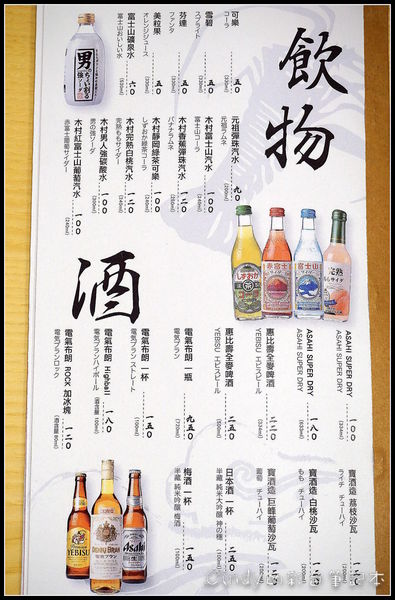 飲物
可樂
コーラ
五0
(330ml)
雪碧
スプライト
五0
(330ml)
芬達
ファンタ
五0
(330ml)
美粒果
オレンジジュース
五0
富士山礦泉水
富士山おいしい水
六0
(530ml)
元祖彈珠汽水
元祖ラムネ
九0
(200ml)
木村富士山汽水
富士山コーラ
一00
(240ml)
木村香蕉彈珠汽水
バナナラムネ
一二0
木村靜岡綠茶可樂
しずおか緑茶コーラ
一00
(240ml)
木村完熟白桃汽水
完熟ももサイダー
一二0
(240ml)
木村男人強碳酸水
男の強ソーダ
一00
木村紅富士山葡萄汽水
赤富士葡萄サイダー
一00
(240ml)
酒
ASAHI SUPER DRY
ASAHI SUPER DRY
一00
ASAHI SUPER DRY
ASAHI SUPER DRY
一八0
惠比壽全麥啤酒
YEBISU エビスビール
惠比壽全麥啤酒
YEBISU エビスビール
二五0
電氣布朗 一瓶
電気ブラン
九五0
(720ml)
電氣布朗 一杯
電気ブラン ストレート
一五0
(100ml)
電氣布朗 Highball
電気ブランハイボール
一八0
電氣布朗 ROCK 加冰塊
電気ブランロック
一二0
寶酒造 荔枝沙瓦
ライチ チューハイ
一二0
寶酒造 白桃沙瓦
もも チューハイ
一二0
寶酒造 巨蜂葡萄沙瓦
葡萄 チューハイ
一二0
日本酒 一杯
半藏 純米大吟釀 神の穗
二五0
梅酒 一杯
半藏 純米吟釀 梅酒
一五0
男
強ソーダ
しずおか
茶
赤富士
富士山
完熟
YEBISU
DENKI BRAN
Asahi